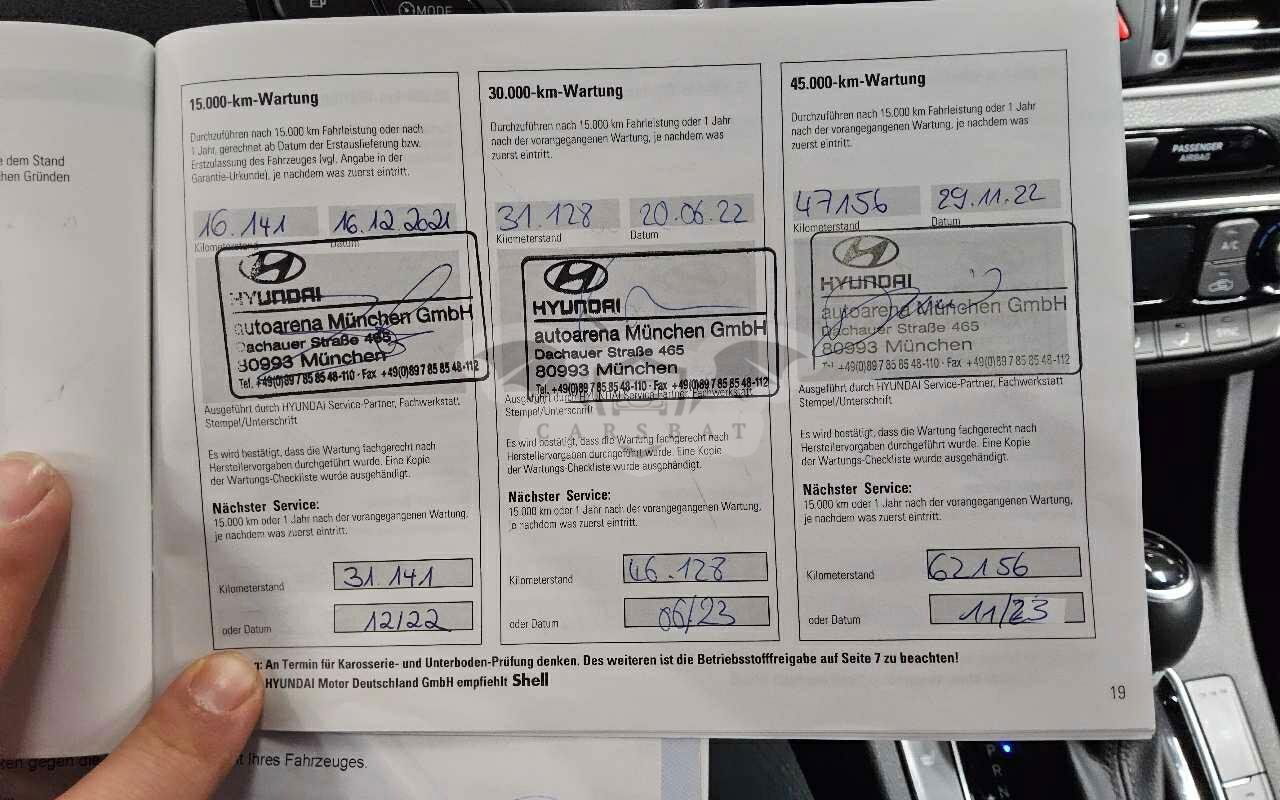 MODE
e dem Stand
chen Gründen
15.000-km-Wartung
Durchzuführen nach 15.000 km Fahrleistung oder nach
1 Jahr, gerechnet ab Datum der Erstauslieferung bzw.
Erstzulassung des Fahrzeuges (vgl. Angabe in der
Garantie-Urkunde), je nachdem was zuerst eintritt.
16.141 16.12.2021
Kilometerstand Datum
HYUNDAI
autoarena München GmbH
Dachauer Straße 465
80993 München
Tel. +49(0)89 7 85 85 48-110 · Fax +49(0)89 7 85 85 48-112
Ausgeführt durch HYUNDAI Service-Partner, Fachwerkstatt
Stempel/Unterschrift
Es wird bestätigt, dass die Wartung fachgerecht nach
Herstellervorgaben durchgeführt wurde. Eine Kopie
der Wartungs-Checkliste wurde ausgehändigt.
Nächster Service:
15.000 km oder 1 Jahr nach der vorangegangenen Wartung,
je nachdem was zuerst eintritt.
Kilometerstand 31.141
oder Datum 12/22
30.000-km-Wartung
Durchzuführen nach 15.000 km Fahrleistung oder 1 Jahr
nach der vorangegangenen Wartung, je nachdem was
zuerst eintritt.
31.128 20.06.22
Kilometerstand Datum
HYUNDAI
autoarena München GmbH
Dachauer Straße 465
80993 München
Tel. +49(0)89 7 85 85 48-110 · Fax +49(0)89 7 85 85 48-112
Ausgeführt durch HYUNDAI Service-Partner, Fachwerkstatt
Stempel/Unterschrift
CARSBAT
Es wird bestätigt, dass die Wartung fachgerecht nach
Herstellervorgaben durchgeführt wurde. Eine Kopie
der Wartungs-Checkliste wurde ausgehändigt.
Nächster Service:
15.000 km oder 1 Jahr nach der vorangegangenen Wartung,
je nachdem was zuerst eintritt.
Kilometerstand 46.128
oder Datum 06/23
45.000-km-Wartung
Durchzuführen nach 15.000 km Fahrleistung oder 1 Jahr
nach der vorangegangenen Wartung, je nachdem was
zuerst eintritt.
47156 29.11.22
Kilometerstand Datum
HYUNDAI
autoarena München GmbH
Dachauer Straße 465
80993 München
Tel. +49(0)89 7 85 85 48-110 · Fax +49(0)89 7 85 85 48-112
Ausgeführt durch HYUNDAI Service-Partner, Fachwerkstatt
Stempel/Unterschrift
Es wird bestätigt, dass die Wartung fachgerecht nach
Herstellervorgaben durchgeführt wurde. Eine Kopie
der Wartungs-Checkliste wurde ausgehändigt.
Nächster Service:
15.000 km oder 1 Jahr nach der vorangegangenen Wartung,
je nachdem was zuerst eintritt.
Kilometerstand 62156
oder Datum 11/23
g: An Termin für Karosserie- und Unterboden-Prüfung denken. Des weiteren ist die Betriebsstofffreigabe auf Seite 7 zu beachten!
HYUNDAI Motor Deutschland GmbH empfiehlt Shell
19
ten gegen die
t Ihres Fahrzeuges.
PASSENGER
AIRBAG
A/C
SYNC
P
R
N